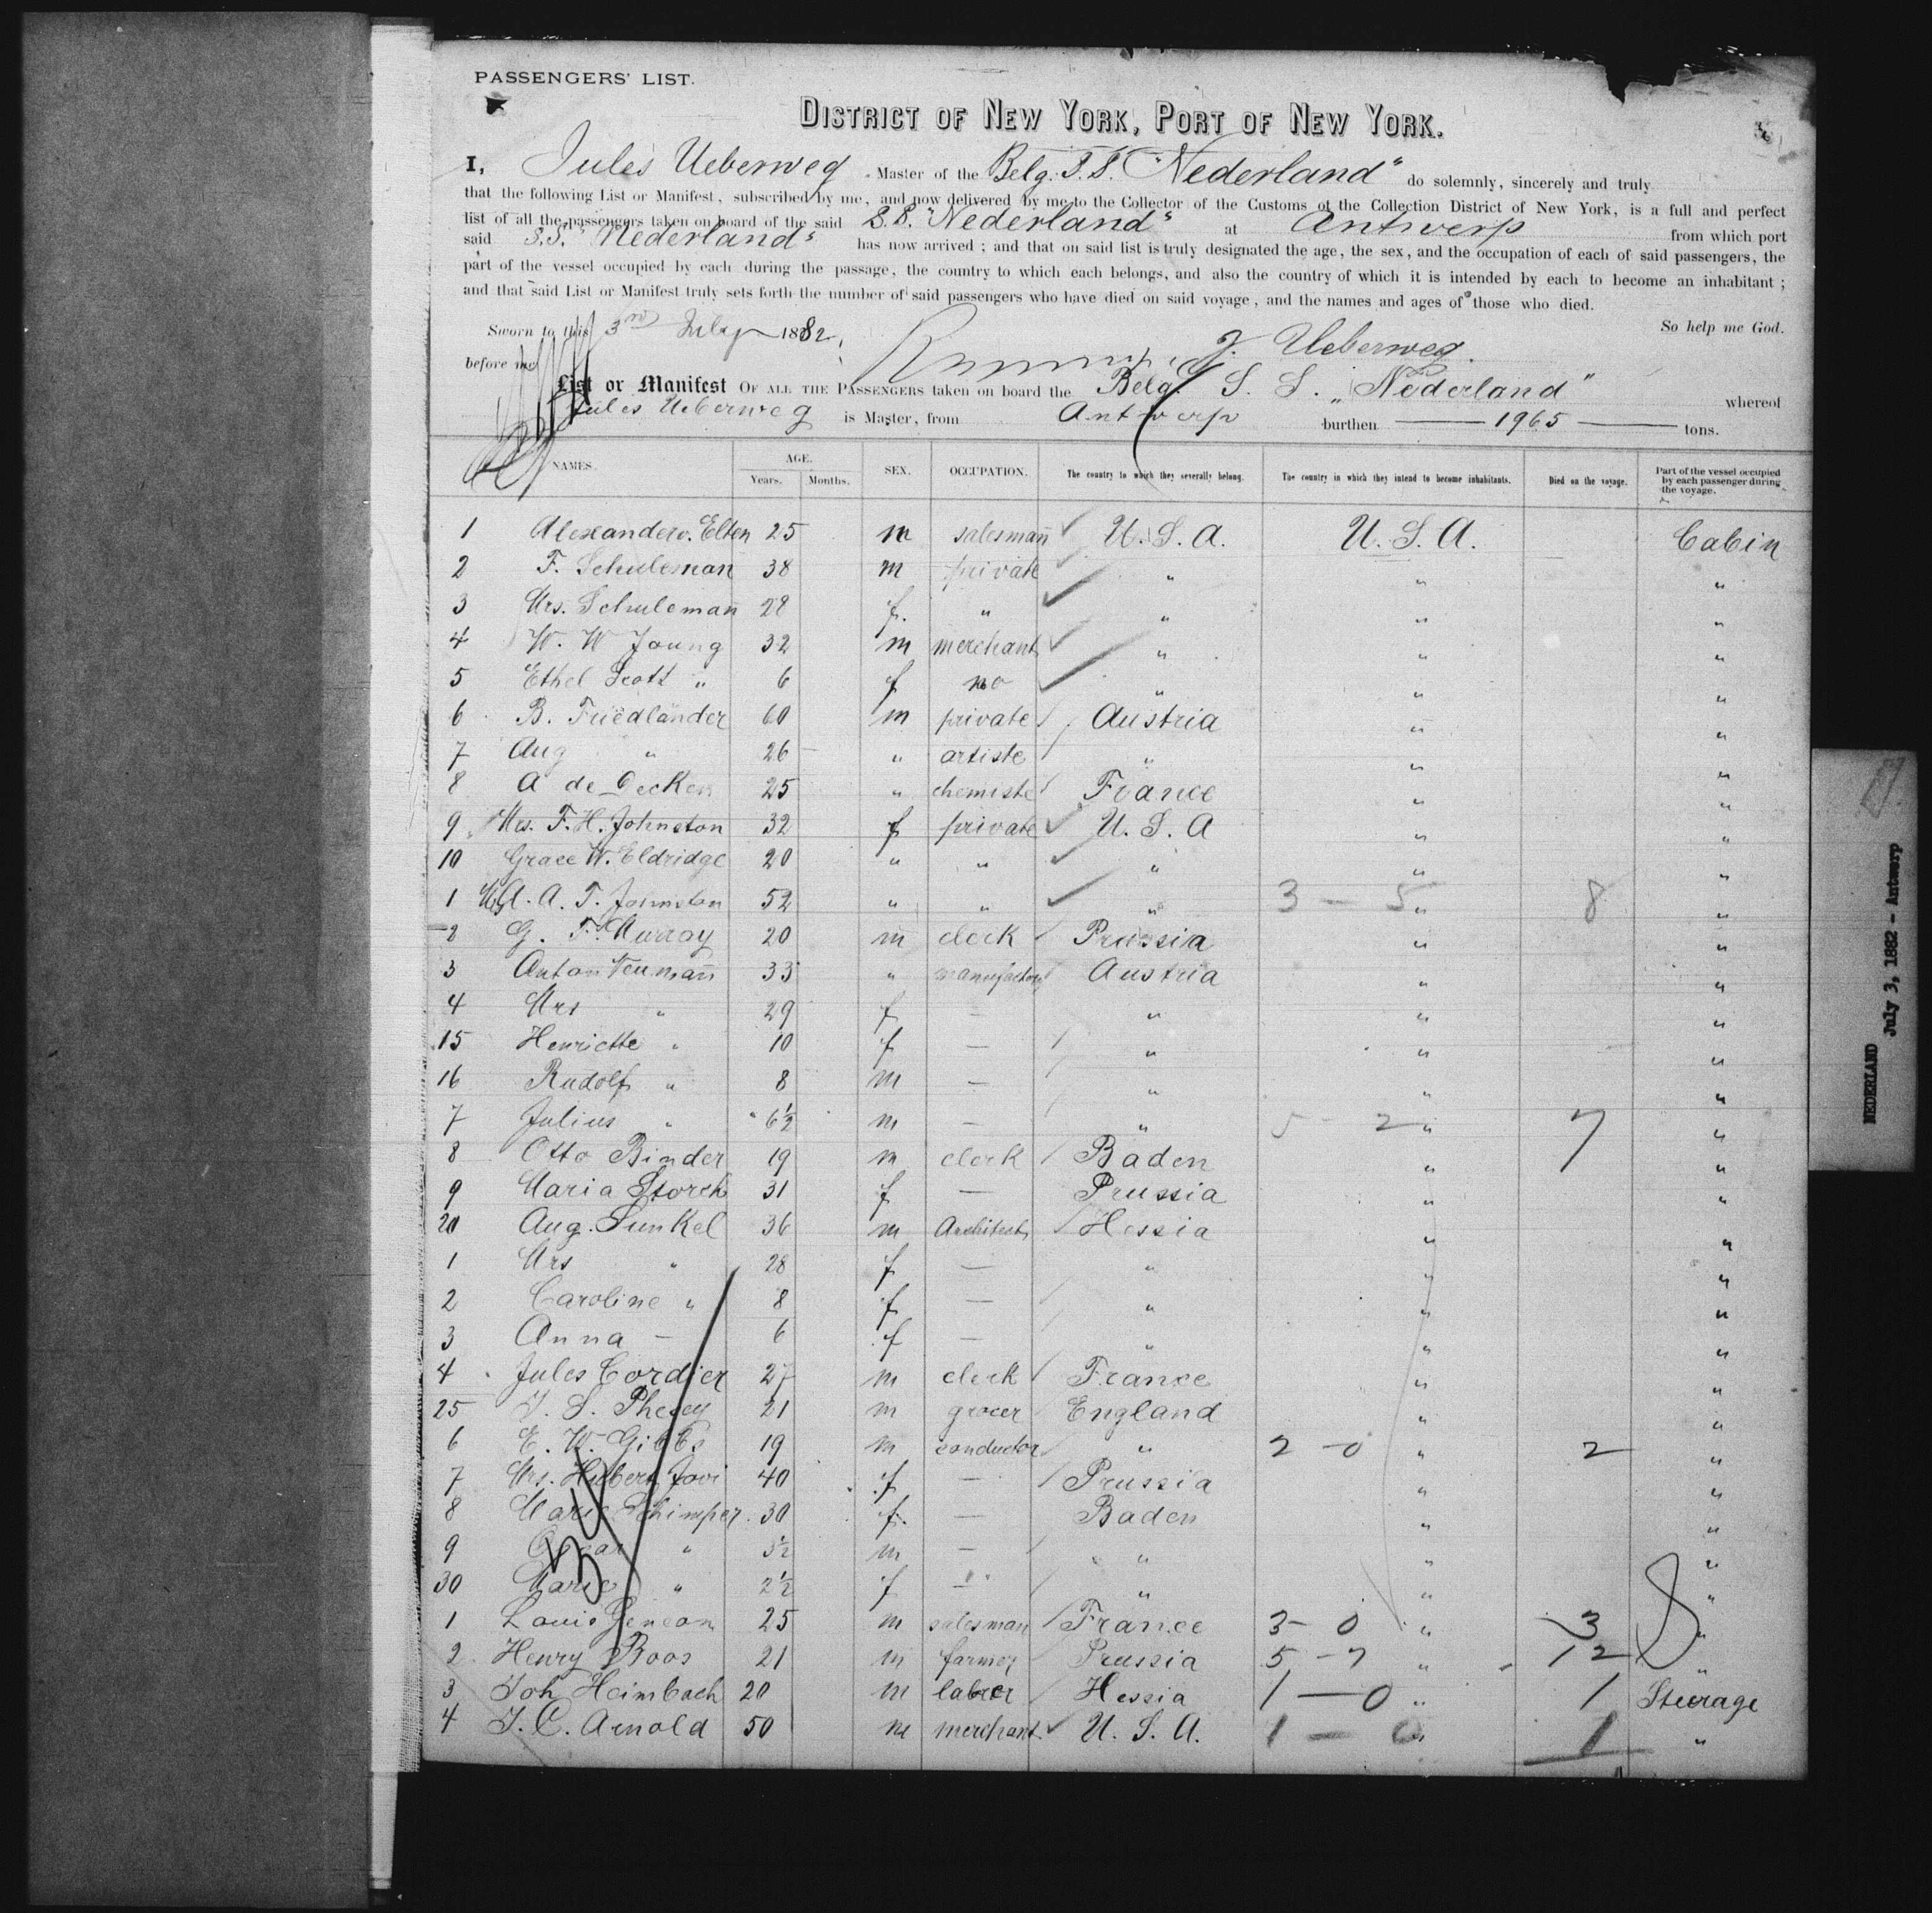 PASSENGERS' LIST.
DISTRICT OF NEW YORK, PORT OF NEW YORK.
I, Jules Ueberweg Master of the Belg. S.S. "Nederland" do solemnly, sincerely and truly
that the following List or Manifest, subscribed by me, and now delivered by me to the Collector of the Customs of the Collection District of New York, is a full and perfect
list of all the passengers taken on board of the said S.S. "Nederland" at Antwerp from which port
said S.S. "Nederland" has now arrived; and that on said list is truly designated the age, the sex, and the occupation of each of said passengers, the
part of the vessel occupied by each during the passage, the country to which each belongs, and also the country of which it is intended by each to become an inhabitant;
and that said List or Manifest truly sets forth the number of said passengers who have died on said voyage, and the names and ages of those who died.
Sworn to this 3rd July 1882, So help me God.
before me J. Ueberweg.
List or Manifest OF ALL THE PASSENGERS taken on board the Belg. S. S. "Nederland" whereof
Jules Ueberweg is Master, from Antwerp burthen 1965 tons.
NAMES. AGE. Years. Months. SEX. OCCUPATION. The country to which they severally belong. The country in which they intend to become inhabitants. Died on the voyage. Part of the vessel occupied by each passenger during the voyage.
1 Alexander v. Elten 25 m salesman U.S.A. U.S.A. Cabin
2 F. Schuleman 38 m private " " "
3 Mrs. Schuleman 28 f. " " " "
4 W. W Young 32 m merchant " " "
5 Ethel Scott " 6 f no " " "
6 B. Friedländer 60 m private Austria " "
7 Aug " 26 " artiste " " "
8 A de Decker 25 " chemiste France " "
9 Mrs. F. H. Johnston 32 f private U.S.A " "
10 Grace W. Eldridge 20 " " " " "
1 A. A. T. Johnston 52 " " " 3 - 5 " 8 "
2 G. F. Murray 20 m clerk Prussia " "
3 Anton Neumann 33 " manufacturer Austria " "
4 Mrs " 29 f — " " "
15 Henriette " 10 f — " " "
16 Rudolf " 8 m — " " "
7 Julius " 6½ m — " 5 - 2 " 7 "
8 Otto Binder 19 m clerk Baden " "
9 Maria Storck 31 f — Prussia " "
20 Aug. Sunkel 36 m Architect Hessia " "
1 Mrs " 28 f — " " "
2 Caroline " 8 f — " " "
3 Anna — 6 f — " " "
4 Jules Cordier 27 m clerk France " "
25 S. 21 m grocer England " "
6 E. W. Gibbs 19 m conductor " 2 - 0 " 2 "
7 Mrs. Hubert 40 f — Prussia " "
8 Marie Schimper 30 f. — Baden " "
9 Oscar " 3½ m — " " "
30 Marie " 2½ f — " " "
1 Louis 25 m salesman France 3 - 0 " 3 "
2 Henry Boos 21 m farmer Prussia 5 - 7 " 12 "
3 Joh Heimbach 20 m laborer Hessia 1 — 0 " 1 Steerage
4 J. C. Arnold 50 m merchant U.S.A. 1 - 0 " 1 "
34
NEDERLAND July 3, 1882 - Antwerp